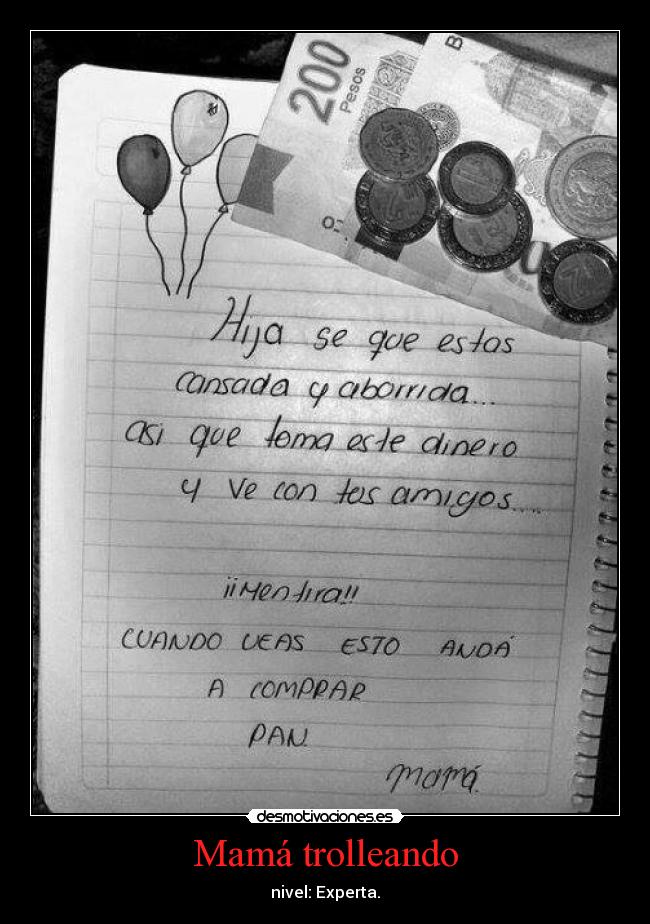 200
Pesos
B
Hija se que estas
cansada y aborrida...
asi que toma este dinero
y ve con tus amigos....
¡¡Mentira!!
CUANDO VEAS ESTO ANDÁ
A COMPRAR
PAN.
mamá.
desmotivaciones.es
Mamá trolleando
nivel: Experta.